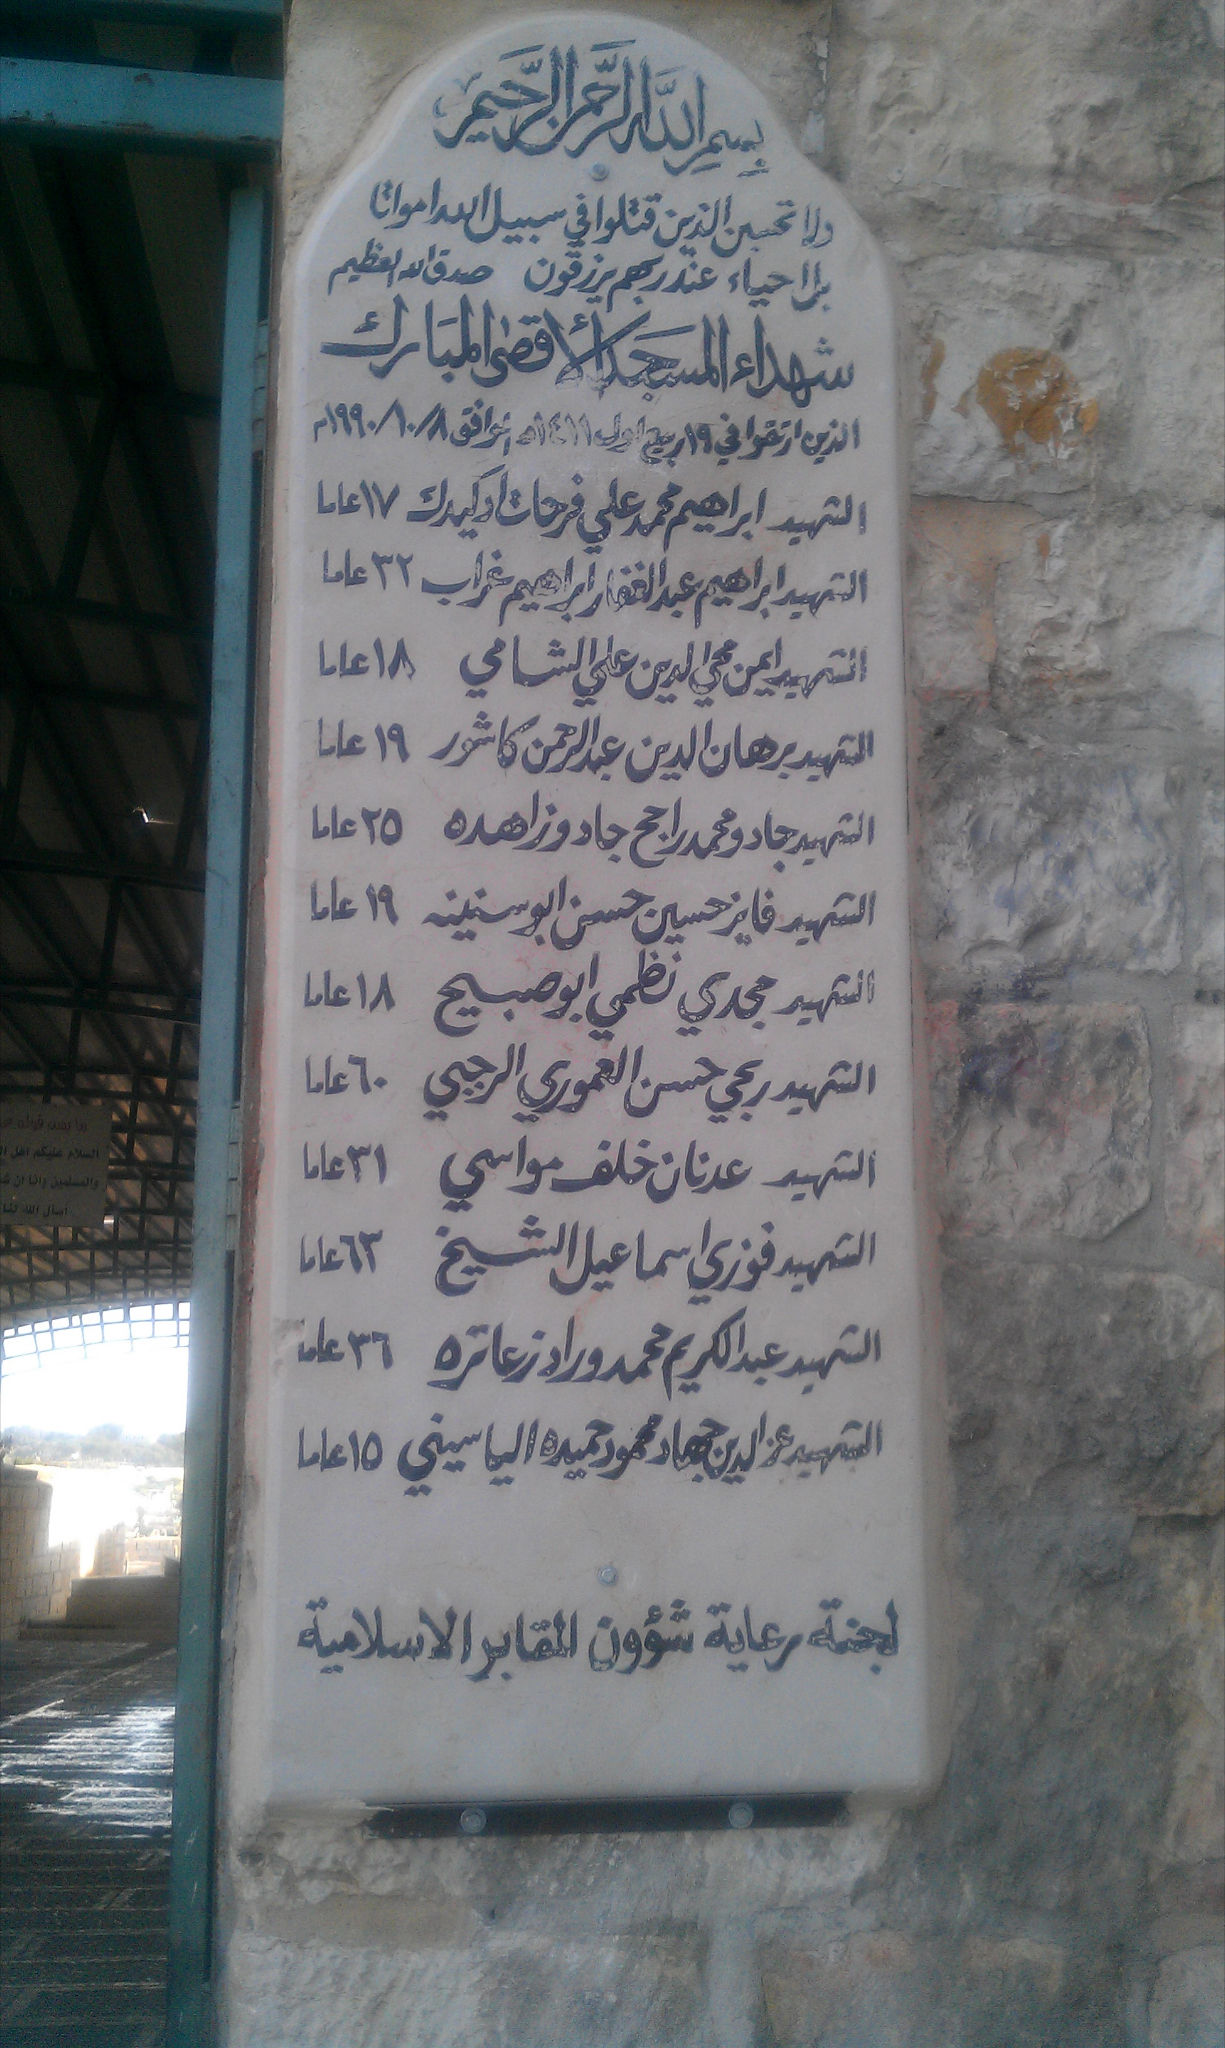 بِسْمِ اللَّهِ الرَّحْمنِ الرَّحِيمِ
ولا تحسبن الذين قتلوا في سبيل الله امواتا
بل احياء عند ربهم يرزقون صدق الله العظيم
شهداء المسجد الأقصى المبارك
الذين ارتقوا في ١٩ ربيع اول ١٤١١ه الموافق ١٩٩٠/١٠/٨م
الشهيد ابراهيم محمد علي فرحات ادكيدك ١٧ عاما
الشهيد ابراهيم عبد الغفار ابراهيم غراب ٣٢ عاما
الشهيد ايمن محي الدين علي الشامي ١٨ عاما
الشهيد برهان الدين عبد الرحمن كاشور ١٩ عاما
الشهيد جادو محمد راجح جادو زاهده ٢٥ عاما
الشهيد فايز حسين حسن ابو سنينه ١٩ عاما
الشهيد مجدي نظمي ابو صبيح ١٨ عاما
الشهيد ربحي حسن العموري الرجبي ٦٠ عاما
الشهيد عدنان خلف مواسي ٣١ عاما
الشهيد فوزي اسماعيل الشيخ ٦٣ عاما
الشهيد عبد الكريم محمد وراد زعاتره ٣٦ عاما
الشهيد عز الدين جهاد محمود حميده الياسيني ١٥ عاما
لجنة رعاية شؤون المقابر الاسلامية
السلام عليكم اهل
والمسلمين وانا ان
أسأل الله لنا